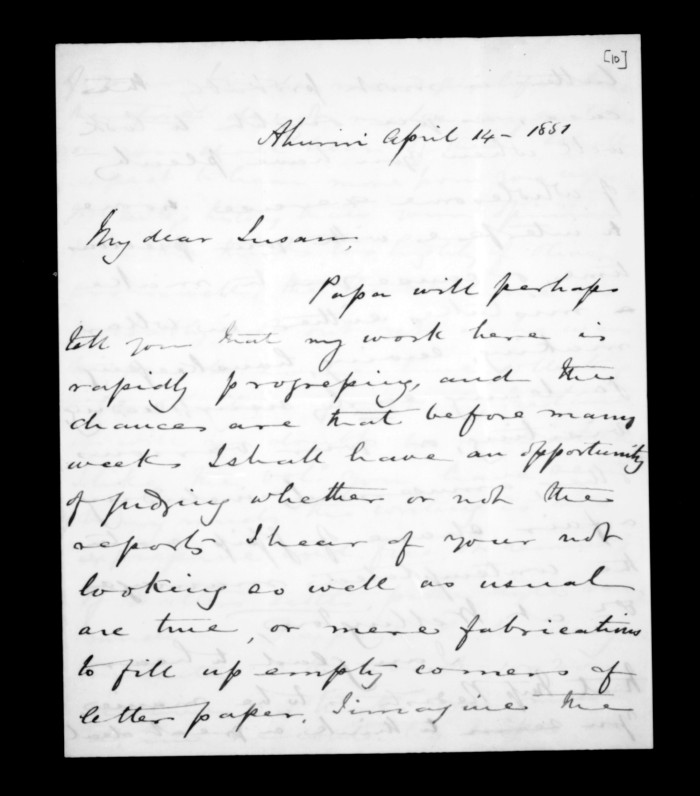 [10]
Ahuriri April 14 - 1851
My dear Susan,
Papa will perhaps
tell you that my work here is
rapidly progressing, and the
chances are that before many
weeks I shall have an opportunity
of judging whether or not the
reports I hear of your not
looking so well as usual
are true, or mere fabrications
to fill up empty corners of
letter paper. I imagine the